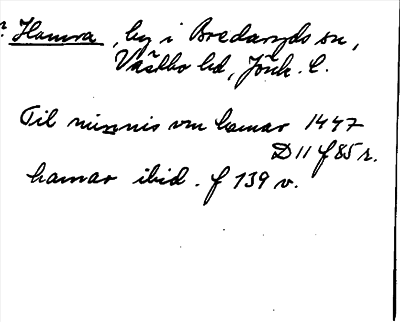 ? Hamra, by i Bredaryds sn,
Västbo hd, Jönk. l.
Til minnis vm hamar 1447
D 11 f 85 r.
hamar ibid. f 139 v.